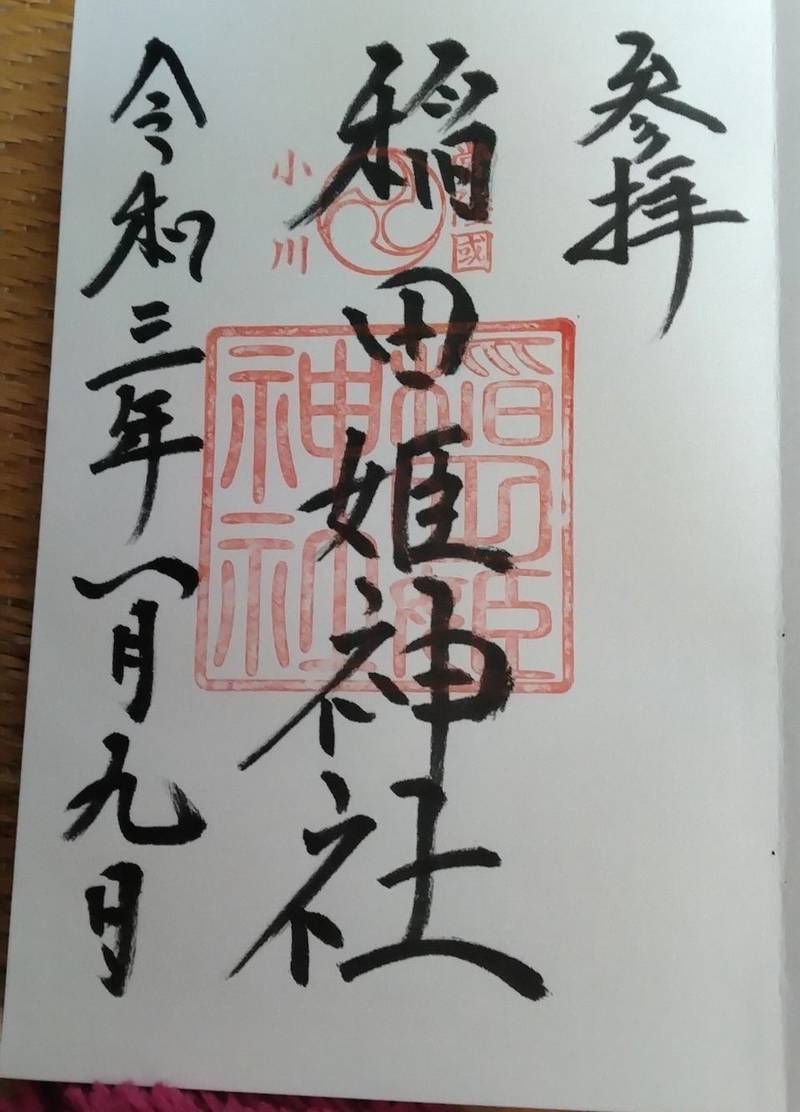 参拝
稲田姫神社
常陸國
小川
神社
令和三年一月九日